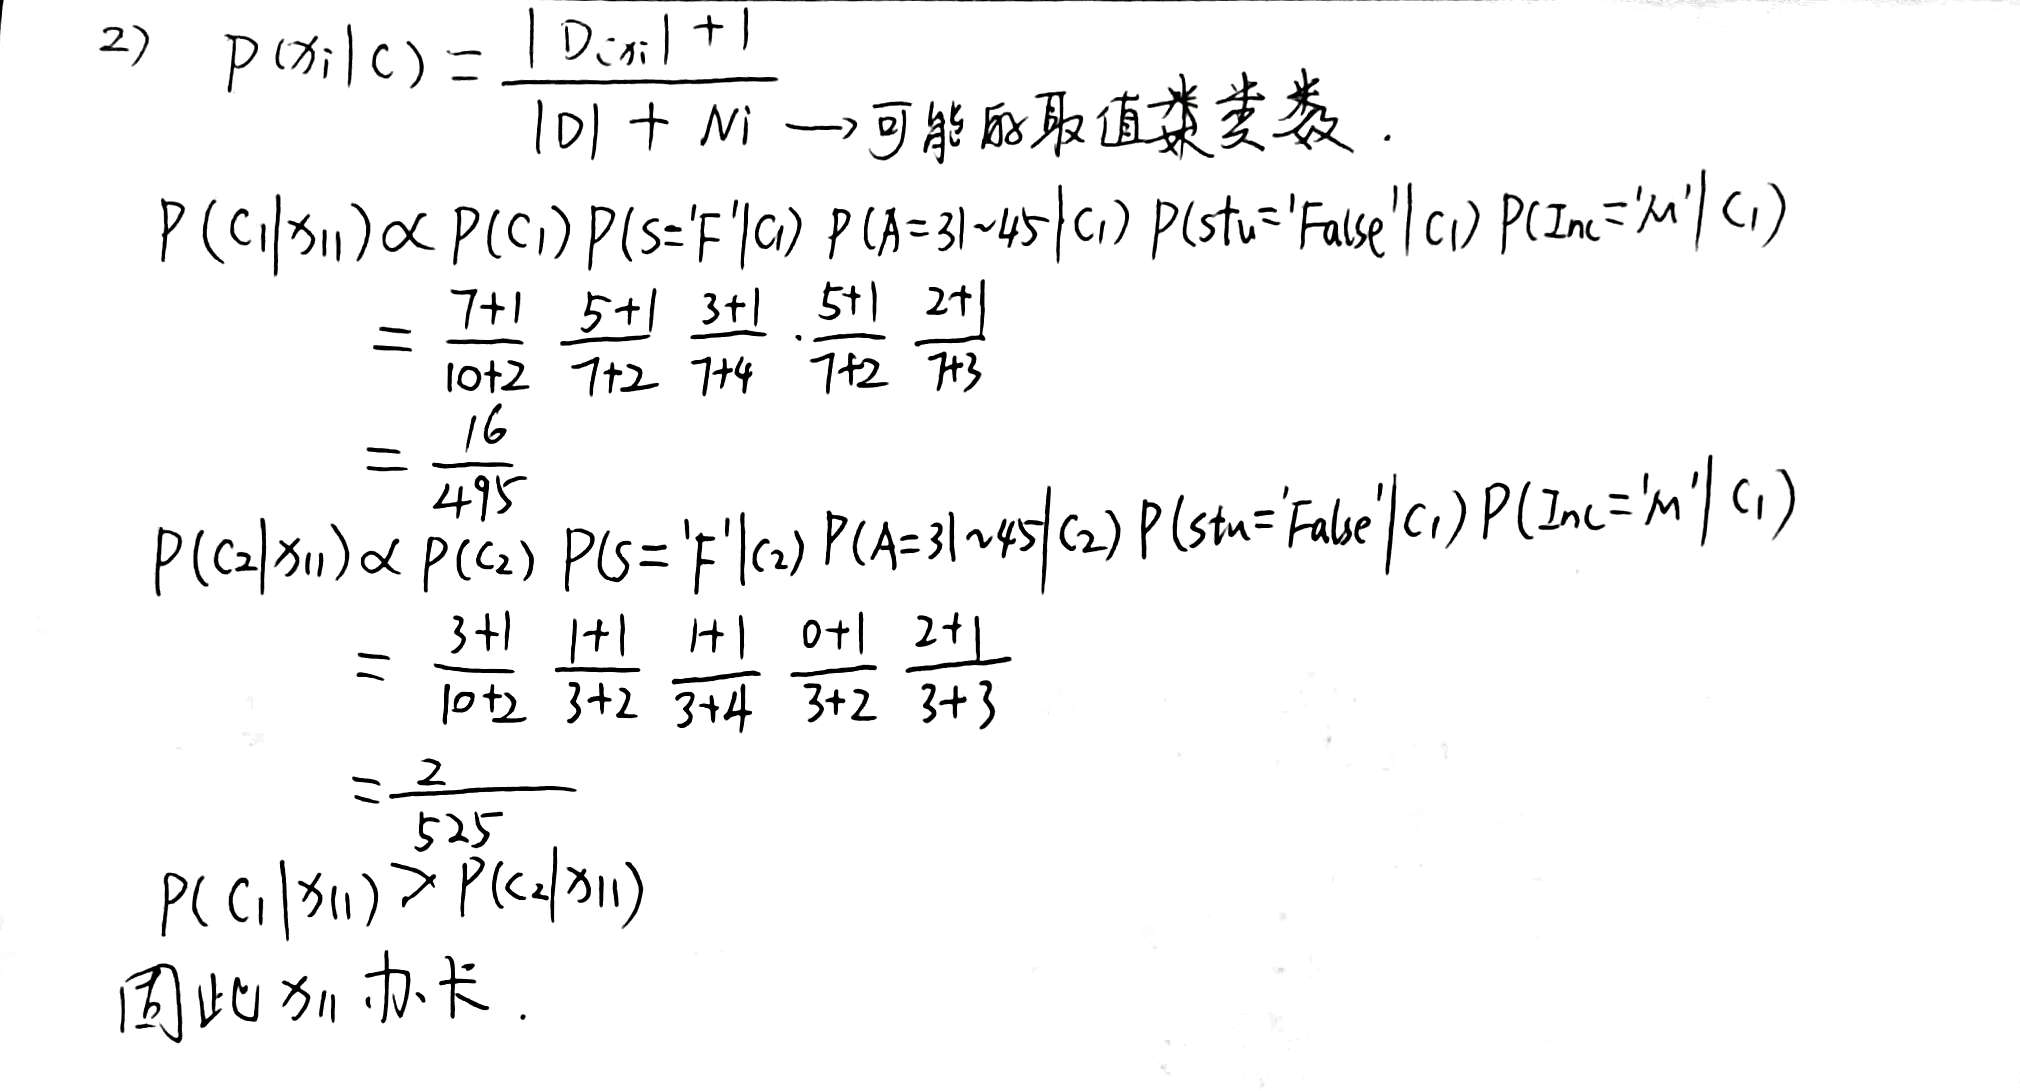 2) P(xi|c) = (|Dcxi| + 1) / (|D| + Ni) → 可能的取值类数.
P(C1|x11) ∝ P(C1) P(S='F'|C1) P(A=31~45|C1) P(stu='False'|C1) P(Inc='M'|C1)
= (7+1)/(10+2) (5+1)/(7+2) (3+1)/(7+4) · (5+1)/(7+2) (2+1)/(7+3)
= 16/495
P(C2|x11) ∝ P(C2) P(S='F'|C2) P(A=31~45|C2) P(stu='False'|C1) P(Inc='M'|C1)
= (3+1)/(10+2) (1+1)/(3+2) (1+1)/(3+4) (0+1)/(3+2) (2+1)/(3+3)
= 2/525
P(C1|x11) > P(C2|x11)
因此 x11 办卡.